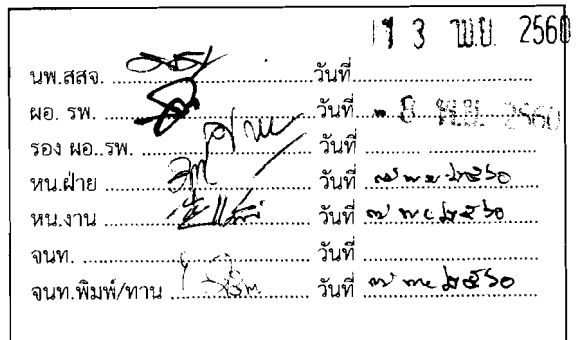 13 พ.ย. 2560
นพ.สสจ. ............ วันที่............
ผอ. รพ. ............ วันที่ 8 พ.ย. 2560
รอง ผอ..รพ. ............ วันที่ ............
หน.ฝ่าย ............ วันที่ ๗ พ.ย. ๒๕๖๐
หน.งาน ............ วันที่ ๗ พ.ย. ๒๕๖๐
จนท. ............ วันที่ ............
จนท.พิมพ์/ทาน ............ วันที่ ๗ พ.ย. ๒๕๖๐